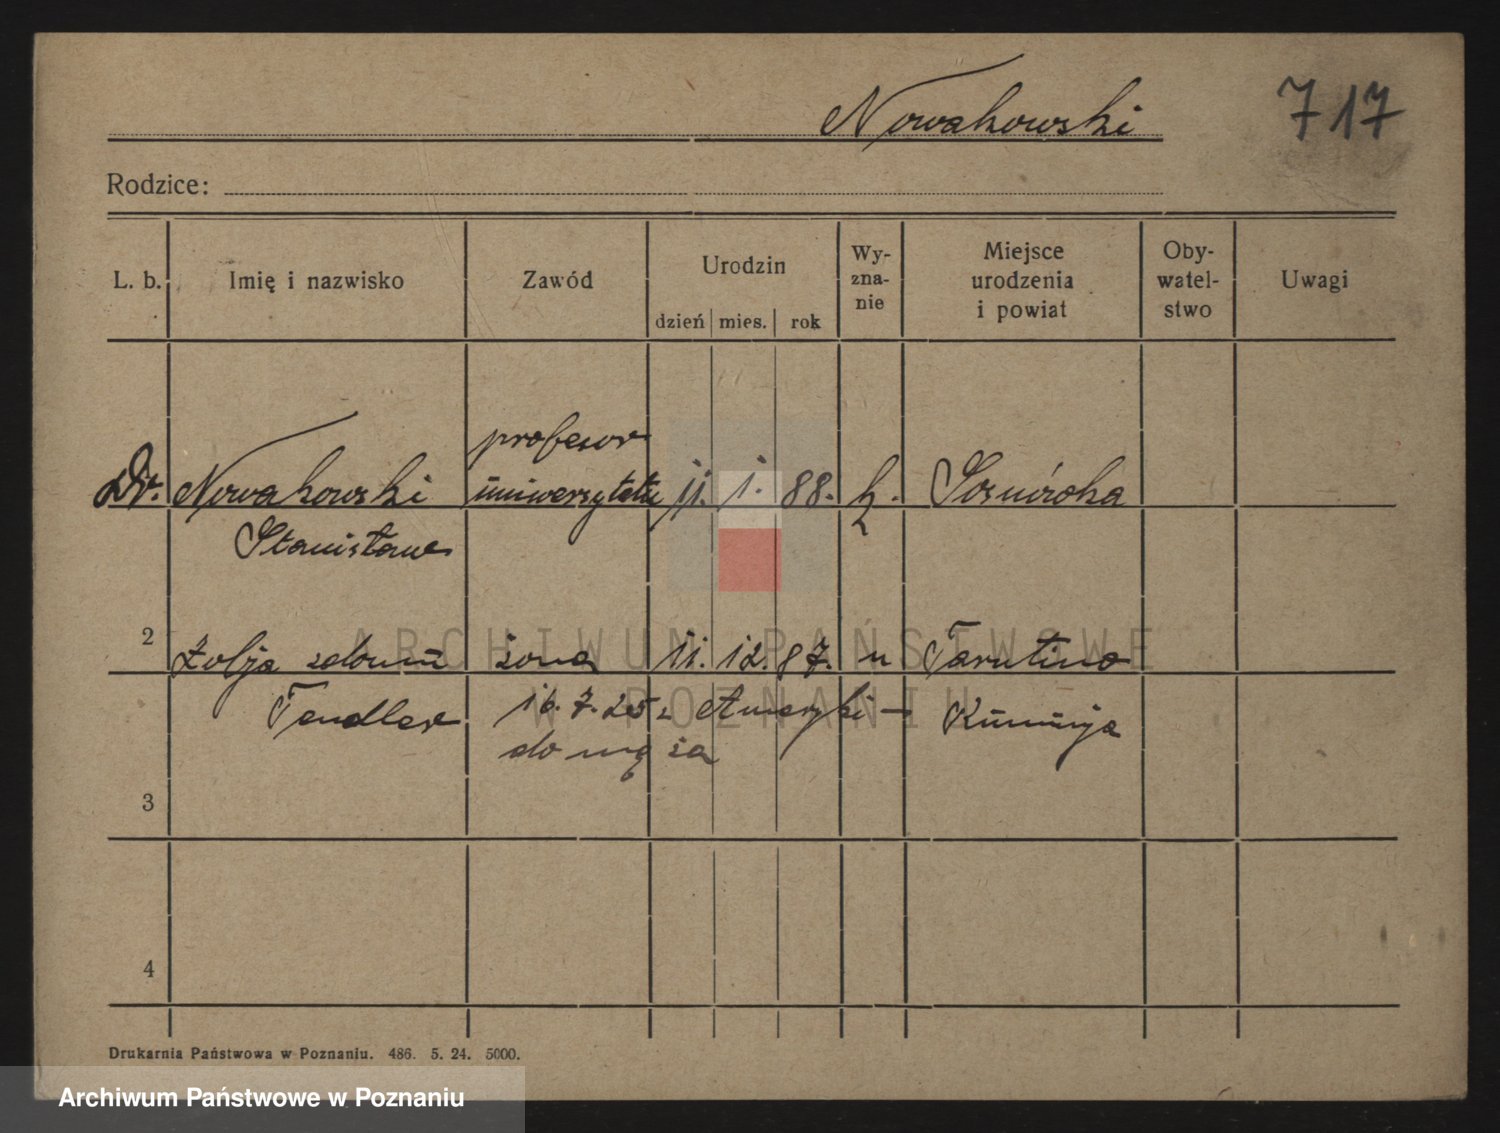 Nowakowski
717
Rodzice:
L. b.
Imię i nazwisko
Zawód
Urodzin
dzień mies. rok
Wy-
zna-
nie
Miejsce
urodzenia
i powiat
Oby-
watel-
stwo
Uwagi
profesor
Dr. Nowakowski uniwersytetu 11. 1. 88. k.
Stanisław
2 żona 11. 12. 87. Tarutino
Tendler 16. 7. 25 z Ameryki – Rumunja
do męża
3
4
Drukarnia Państwowa w Poznaniu. 486. 5. 24. 5000.
ARCHIWUM PAŃSTWOWE
W POZNANIU
Archiwum Państwowe w Poznaniu